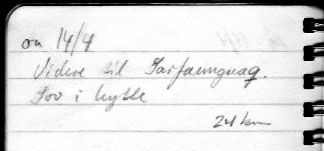 on 14/4
Videre til Tarfaunguaq.
Sov i hytte
24 km